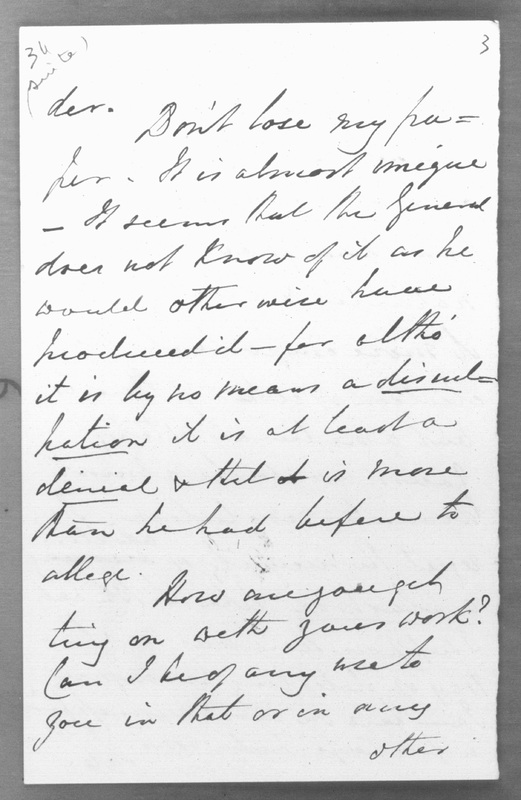 34
(suite)
3
der.
Don't lose my pa=
per. It is almost unique
- It seems that the General
does not know of it as he
would otherwise have
produced it - for altho'
it is by no means a discul=
pation it is at least a
denial & that is more
than he had before to
allege.
How are you get
ting on with your work?
Can I be of any use to
you in that or in any
other